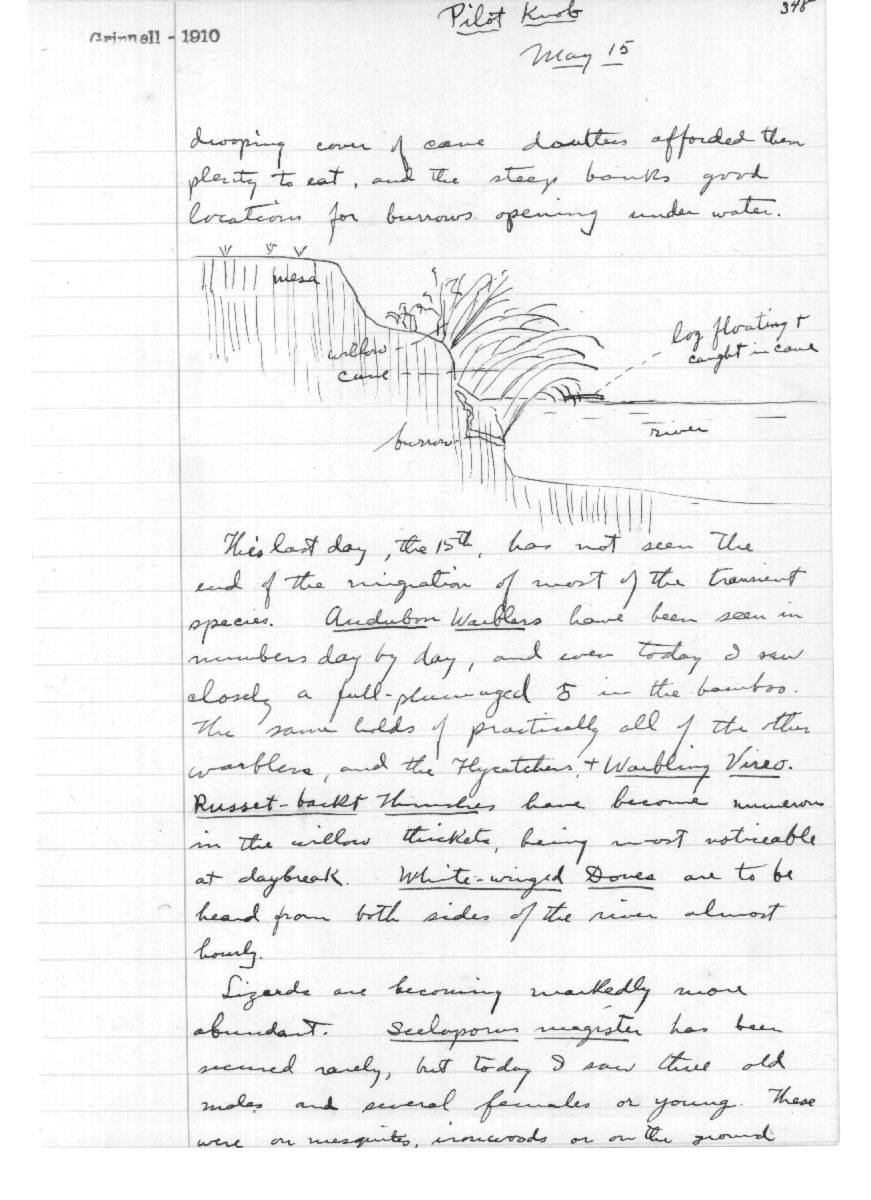 Grinnell - 1910
Pilot Knob
348
May 15
drooping cover of cane doubtless afforded them
plenty to eat, and the steep banks good
locations for burrows opening under water.
mesa
willow
cane
burrow
log floating &
caught in cane
river
This last day, the 15th, has not seen the
end of the migration of most of the transient
species. Audubon Warblers have been seen in
numbers day by day, and even today I saw
closely a full-plumaged ♂ in the bamboo.
The same holds of practically all of the other
warblers, and the Flycatchers, + Warbling Vireo.
Russet-backt Thrushes have become numerous
in the willow thickets, being most noticeable
at daybreak. White-winged Doves are to be
heard from both sides of the river almost
hourly.
Lizards are becoming markedly more
abundant. Sceloporus magister has been
secured rarely, but today I saw three old
males and several females or young. These
were on mesquites, ironwoods or on the ground